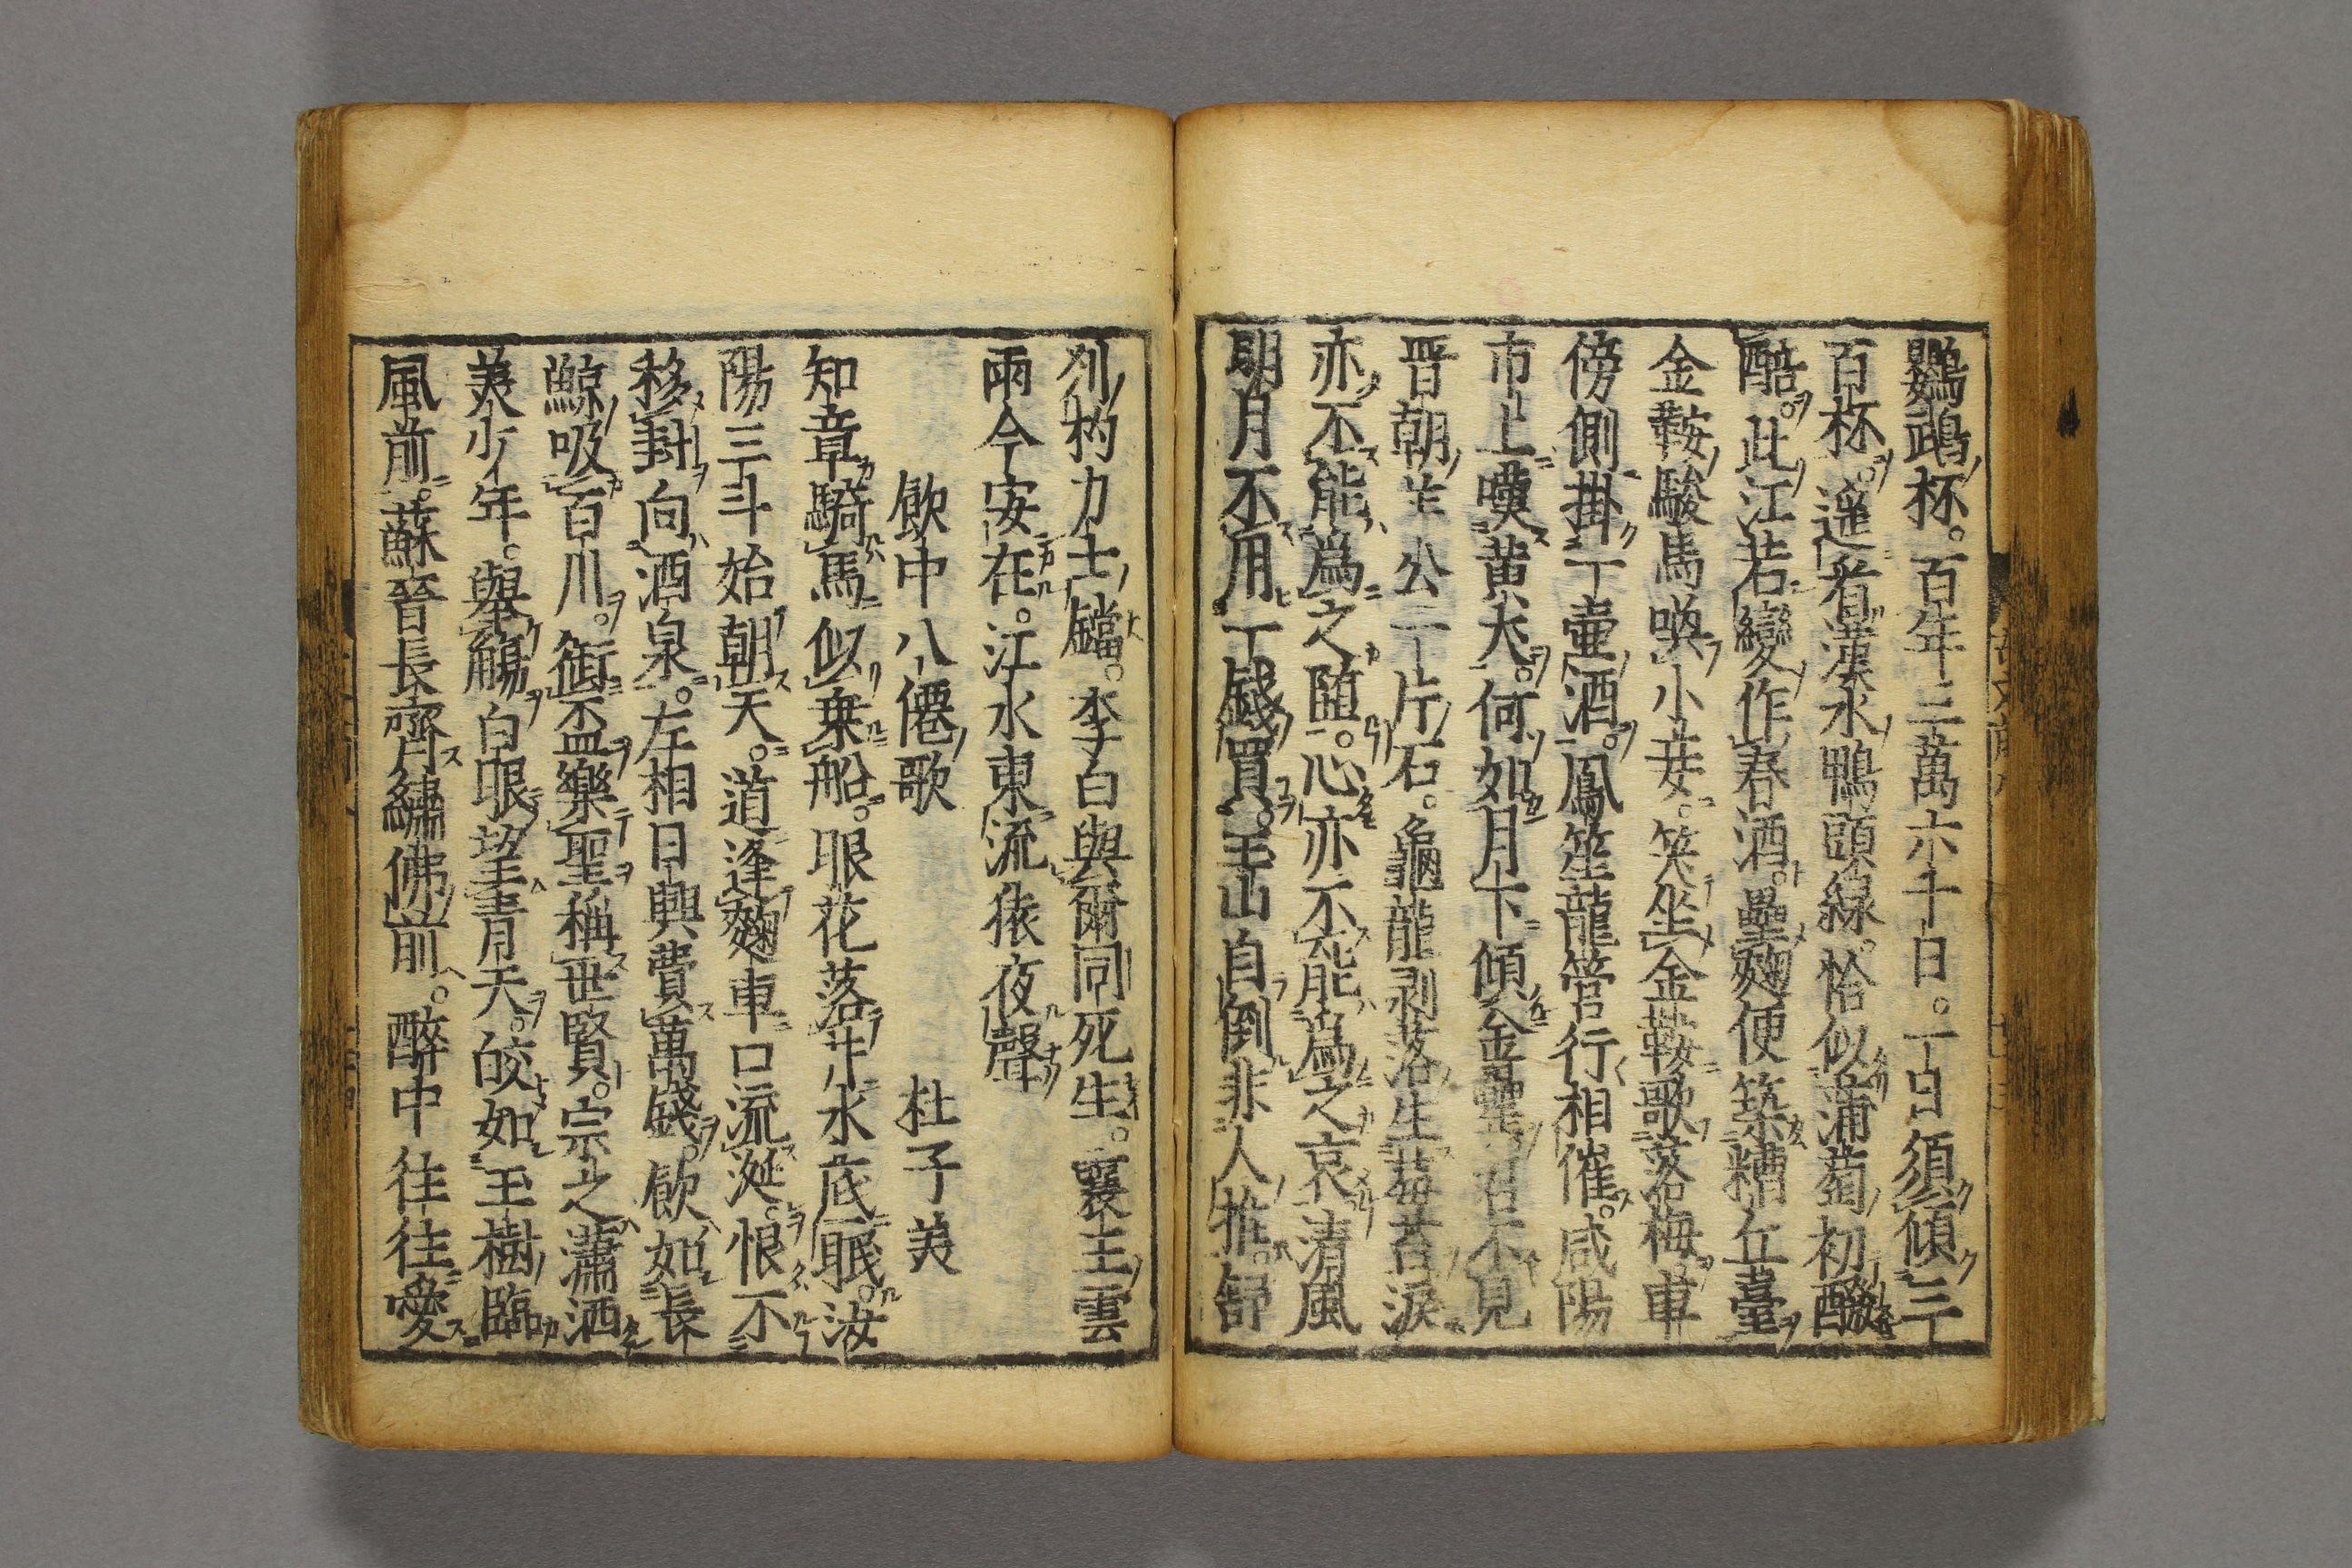 鸚鵡杯。百年三萬六千日。一日須傾三
百杯。遥看漢水鴨頭緑。恰似蒲萄初醱
醅。此江若變作春酒。壘麴便築糟丘臺
金鞍駿馬喚小妾。笑坐金鞍歌落梅。車
傍側掛一壷酒。鳳笙龍管行相催。咸陽
市上嘆黄犬。何如月下傾金罍。君不見
晋朝羊公一片石。龜龍剥落生莓苔淚
亦不能爲之墮。心亦不能爲之哀清風
朗月不用一錢買。玉山自倒非人推。舒
州杓力士鐺。李白與爾同死生。襄王雲
雨今安在。江水東流猿夜聲
飲中八僊歌　杜子美
知章騎馬似乗船。眼花落井水底眠。汝
陽三斗始朝天。道逢麴車口流涎。恨不
移封向酒泉。左相日興費萬錢。飲如長
鯨吸百川。銜盃樂聖稱世賢。宗之瀟洒
美少年。舉觴白眼望青天。皎如玉樹臨
風前。蘇晉長齊繡佛前。醉中往往愛